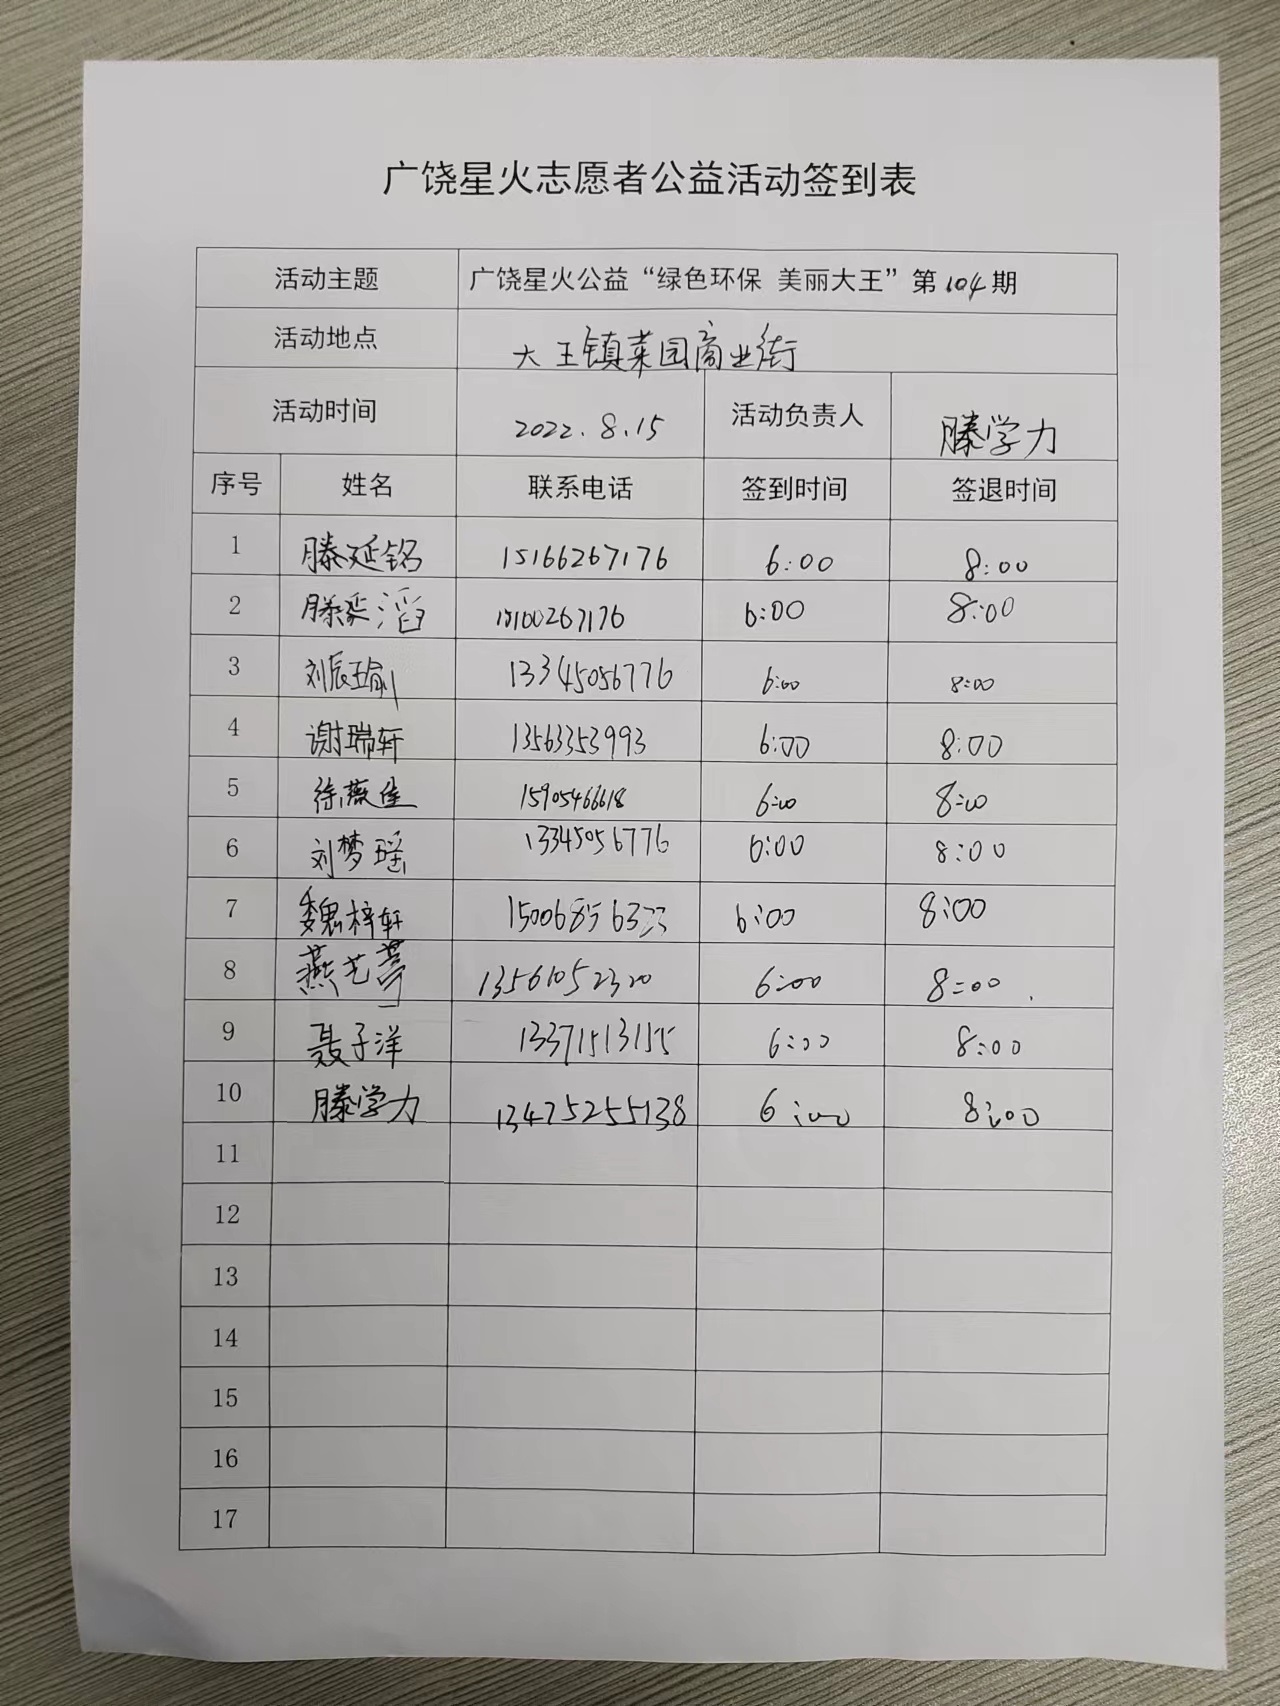 广饶星火志愿者公益活动签到表
活动主题 广饶星火公益“绿色环保 美丽大王”第104期
活动地点 大王镇菜园商业街
活动时间 2022.8.15 活动负责人 滕学力
序号 姓名 联系电话 签到时间 签退时间
1 滕延铭 15166267176 6:00 8:00
2 滕 滔 6:00 8:00
3 刘辰瑜 13345056776 6:00 8:00
4 谢瑞轩 13563353993 6:00 8:00
5 徐薇佳 15905466618 6:00 8:00
6 刘梦瑶 13345056776 6:00 8:00
7 魏梓轩 15006856333 6:00 8:00
8 燕艺 13561052320 6:00 8:00
9 聂子洋 13371513155 6:00 8:00
10 滕学力 13475255138 6:00 8:00
11
12
13
14
15
16
17